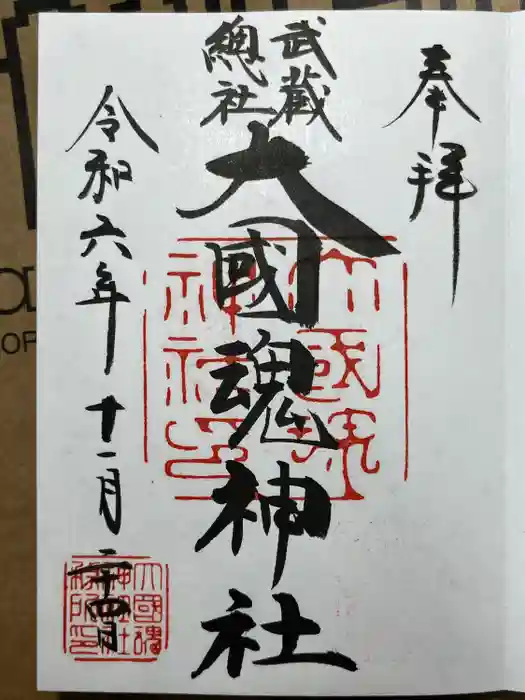 奉拝
武蔵
總社
大國魂神社
大國魂
神社印
令和六年十一月二十四日
大國魂
神社社
務所印